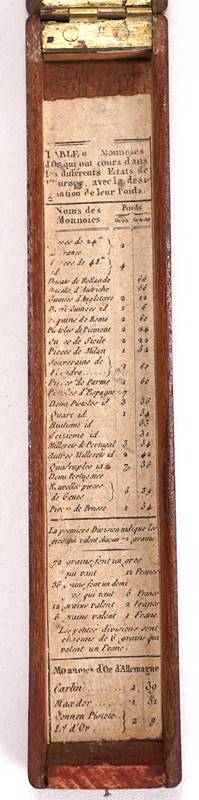 TABLE Monnoies
d'Or qui ont cours dans
les différents Etats de
l'Europe, avec la dési
nation de leur Poids.
Noms des Poids
Monnoies Gros Grains
de 24 2
France
de 48 4
id.
Ducats de Hollande 66
Ducats d'Autriche 66
Guinées d'Angleterre 2 12
id 1
Sequins de Rome 2 60
Pistoles de Piémont 2 24
Onces de Sicile 2
Pièces de Milan 1 52
Souveraine de
Flandre
Pièces de Parme 60
d'Espagne
Demi Pistoles id 3 36
Quart id 1 54
Huitiems id 63
Seiziems id 31
Millerets de Portugal 3 54
autres Millerets id 2 42
Quadruples id 7 36
Demi Portugaise
Nouvelle pièces
de Genes 6 39
Pièces de Prusse 54
La premiere Division indique les
gros qui valent chacun 72 grains
72 grains font un gros
qui vaut 12 Francs
36 grains font un demi
qui vaut 6 Francs
12 grains valent 2 Francs
6 grains valent 1 Franc
Les petites divisions sont
chacune de 6 grains qui
valent un Franc.
Monnoies d'Or d'Allemagne
Carlin 2 39
Max dor 1 51
Sonnen Pistole
Ls d'Or 2 9